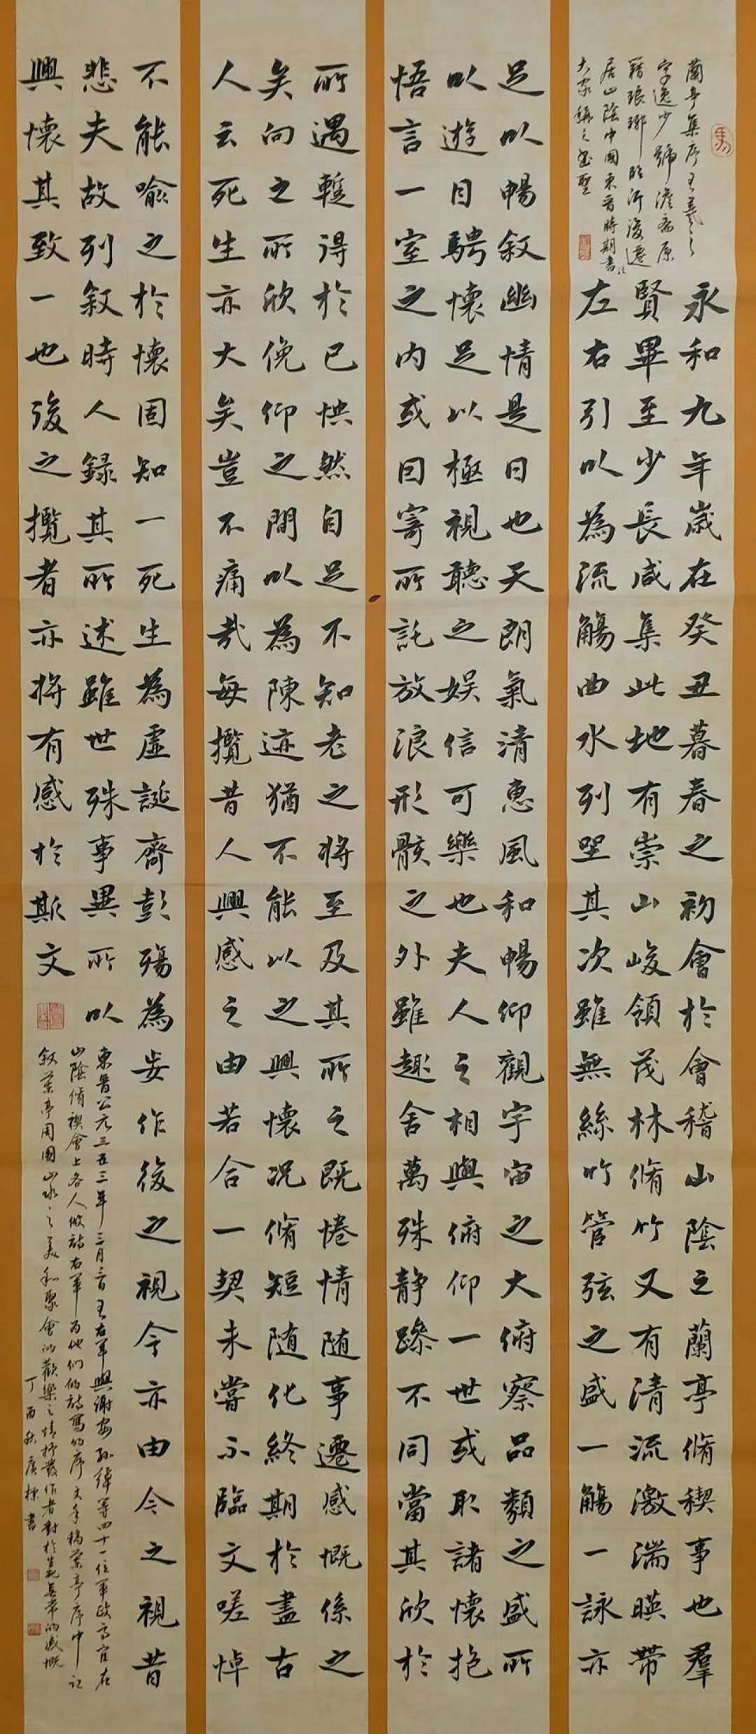 蘭亭集序王羲之
字逸少號澹斋原
籍琅琊临沂後遷
居山陰中國東晋時期書法
大家稱之書聖
永和九年歲在癸丑暮春之初會於會稽山陰之蘭亭脩稧事也羣
賢畢至少長咸集此地有崇山峻領茂林脩竹又有清流激湍暎帶
左右引以為流觴曲水列坐其次雖無絲竹管弦之盛一觴一詠亦
足以暢叙幽情是日也天朗氣清惠風和暢仰觀宇宙之大俯察品類之盛所
以遊目騁懷足以極視聽之娱信可樂也夫人之相與俯仰一世或取諸懷抱
悟言一室之内或因寄所託放浪形骸之外雖趣舍萬殊静躁不同當其欣於
所遇蹔得於己怏然自足不知老之将至及其所之既惓情随事遷感慨係之
矣向之所欣俛仰之間以為陳迹猶不能以之興懷况脩短随化終期於盡古
人云死生亦大矣豈不痛哉每攬昔人興感之由若合一契未嘗不臨文嗟悼
不能喻之於懷固知一死生為虚誕齊彭殤為妄作後之視今亦由今之視昔
悲夫故列叙時人録其所述雖世殊事異所以
興懷其致一也後之攬者亦将有感於斯文
東晋公元三五三年三月三日王右軍與謝安孙綽等四十一位軍政高官在
山陰脩禊會上各人做詩右軍为他们的詩写的序文手稿蘭亭序中记
叙蘭亭周圍山水之美和聚會的歡樂之情抒發作者對於生死無常的感慨
丁酉秋廣標書